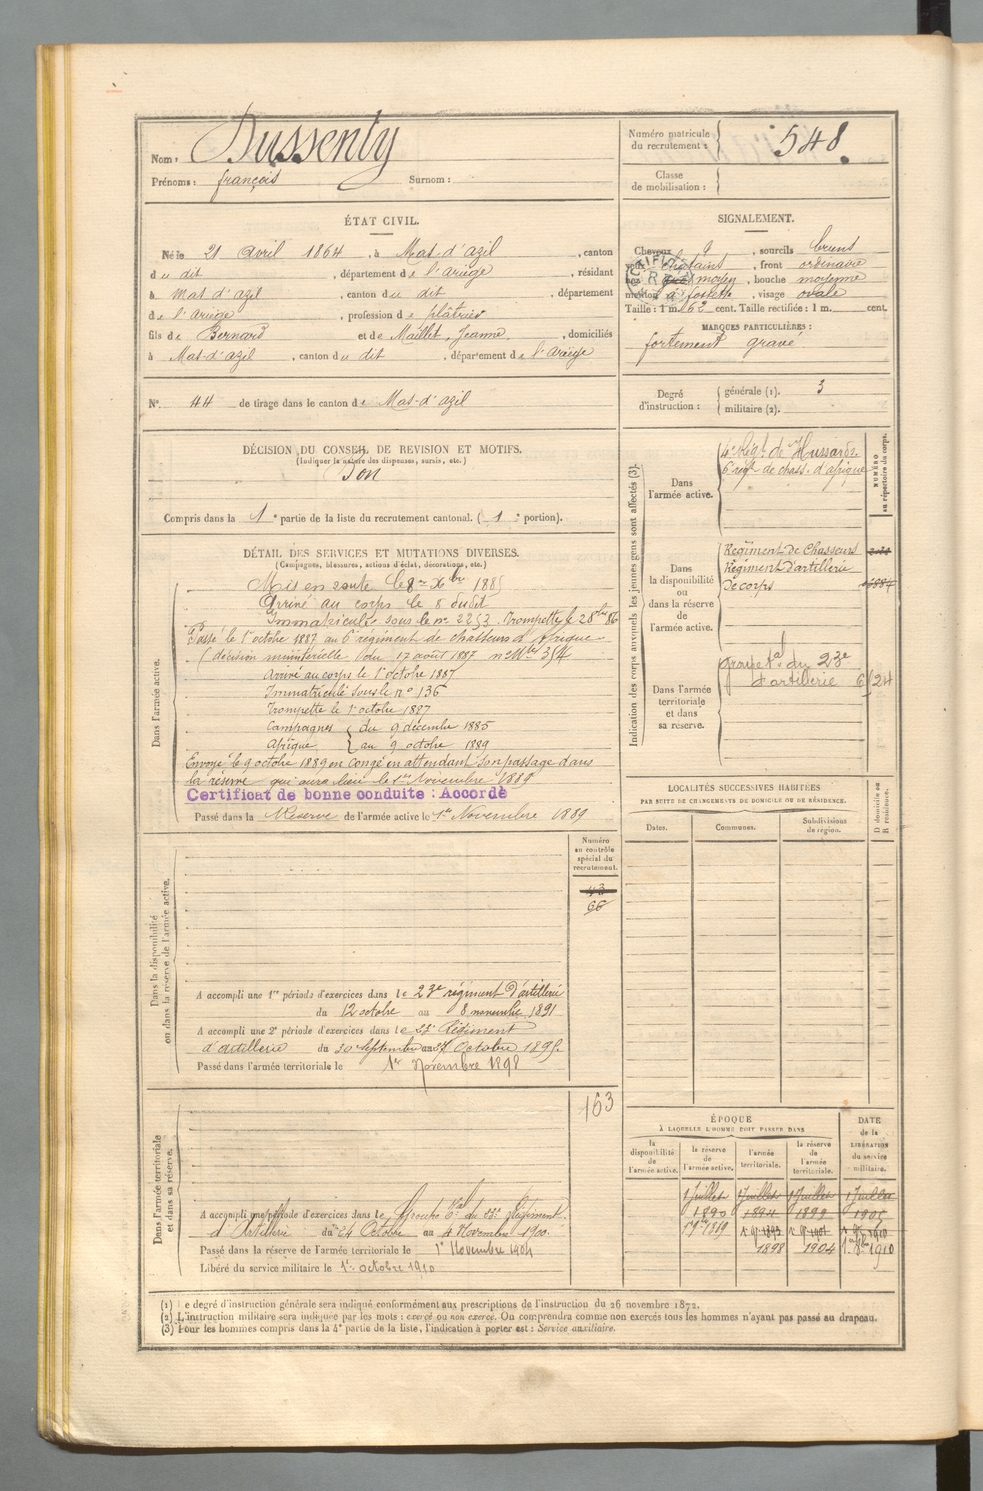 Nom : Dussenty
Prénoms : françois Surnom :
Numéro matricule du recrutement : 548.
Classe de mobilisation :
ÉTAT CIVIL.
Né le 21 Avril 1864, à Mas-d'azil, canton
du dit, département de l'ariège, résidant
à Mas d'azil, canton du dit, département
de l'ariège, profession de plâtrier
fils de Bernard et de Maillet, Jeanne, domiciliés
à Mas-d'azil, canton du dit, département de l'ariège
N° 44 de tirage dans le canton de Mas-d'azil
SIGNALEMENT.
Cheveux, sourcils bruns
chatains, front ordinaire
moyen, bouche moyenne
menton à fossette, visage ovale
Taille : 1 m. 63 cent. Taille rectifiée : 1 m. cent.
MARQUES PARTICULIÈRES :
fortement gravé
Degré d'instruction : générale (1). 3
militaire (2).
DÉCISION DU CONSEIL DE REVISION ET MOTIFS.
(Indiquer la nature des dispenses, sursis, etc.)
Bon
Compris dans la 1e partie de la liste du recrutement cantonal. (1e portion).
DÉTAIL DES SERVICES ET MUTATIONS DIVERSES.
(Campagnes, blessures, actions d'éclat, décorations, etc.)
Dans l'armée active.
Mis en route le 8 Xbre 1885
Arrivé au corps le 8 dudit
Immatriculé sous le n° 2253. Trompette le 28 86
Passé le 1er octobre 1887 au 6e régiment de chasseurs d'Afrique
(décision ministérielle du 17 août 1887 n° 354
Arrivé au corps le 1er octobre 1887
Immatriculé sous le n° 136
Trompette le 1er octobre 1887
Campagnes du 9 décembre 1885
Afrique au 9 octobre 1889
Envoyé le 9 octobre 1889 en congé en attendant son passage dans
la réserve qui aura lieu le 1er Novembre 1889
Certificat de bonne conduite : Accordé
Passé dans la Réserve de l'armée active le 1er Novembre 1889
Indication des corps auxquels les jeunes gens sont affectés (3).
NUMÉRO au répertoire du corps.
Dans l'armée active.
4e Régt de Hussards
6e régt de chass. d'afrique
Dans la disponibilité ou dans la réserve de l'armée active.
Régiment de Chasseurs
Régiment d'artillerie
de corps
Dans l'armée territoriale et dans sa réserve.
groupe tal du 23e
d'artillerie 6/24
LOCALITÉS SUCCESSIVES HABITÉES
PAR SUITE DE CHANGEMENTS DE DOMICILE OU DE RÉSIDENCE.
Dates. Communes. Subdivisions de région. D domicile ou R résidence.
Dans la disponibilité ou dans la réserve de l'armée active.
Numéro au contrôle spécial du recrutement.
43
66
A accompli une 1re période d'exercices dans le 23e régiment d'artillerie
du 12 octobre au 8 novembre 1891
A accompli une 2e période d'exercices dans le 23e Régiment
d'artillerie du 30 Septembre au 27 Octobre 1895.
Passé dans l'armée territoriale le 1er Novembre 1898
Dans l'armée territoriale et dans sa réserve.
163
A accompli une période d'exercices dans le Groupe tal du 23e Régiment
d'Artillerie du 24 Octobre au 4 Novembre 1900.
Passé dans la réserve de l'armée territoriale le 1er Novembre 1904
Libéré du service militaire le 1er octobre 1910
ÉPOQUE
À LAQUELLE L'HOMME DOIT PASSER DANS
la disponibilité de l'armée active. la réserve de l'armée active. l'armée territoriale. la réserve de l'armée territoriale.
DATE de la LIBÉRATION du service militaire.
1 Juillet 1 Juillet 1 Juillet 1 Juillet
1890 1894 1899 1905
1898 1904 1910
(1) Le degré d'instruction générale sera indiqué conformément aux prescriptions de l'instruction du 26 novembre 1872.
(2) L'instruction militaire sera indiquée par les mots : exercé ou non exercé. On comprendra comme non exercés tous les hommes n'ayant pas passé au drapeau.
(3) Pour les hommes compris dans la 4e partie de la liste, l'indication à porter est : Service auxiliaire.